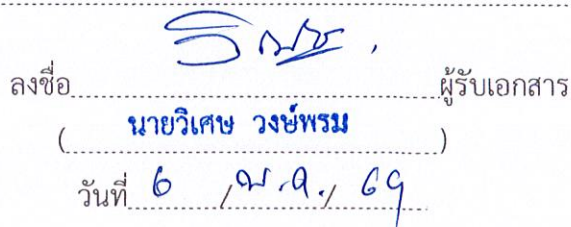 ลงชื่อ วิเศษ ผู้รับเอกสาร
(นายวิเศษ วงษ์พรม)
วันที่ 6 / พ.ค. / 69